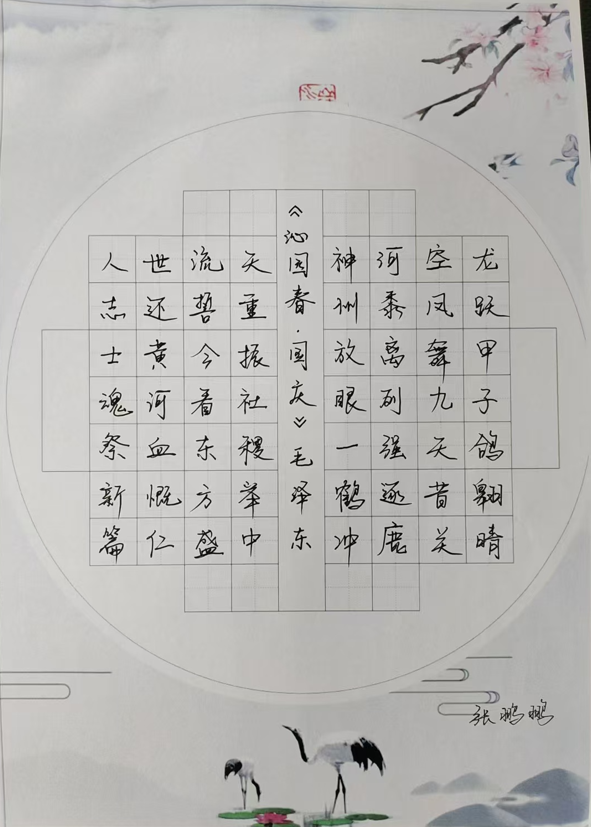 龙跃甲子鸽翱晴
空凤舞九天昔关
河黍离列强逐鹿
神州放眼一鹤冲
《沁园春·国庆》毛泽东
天重振社稷举中
流誓今看东方盛
世还黄河血慨仁
人志士魂祭新篇
张鹏鹏